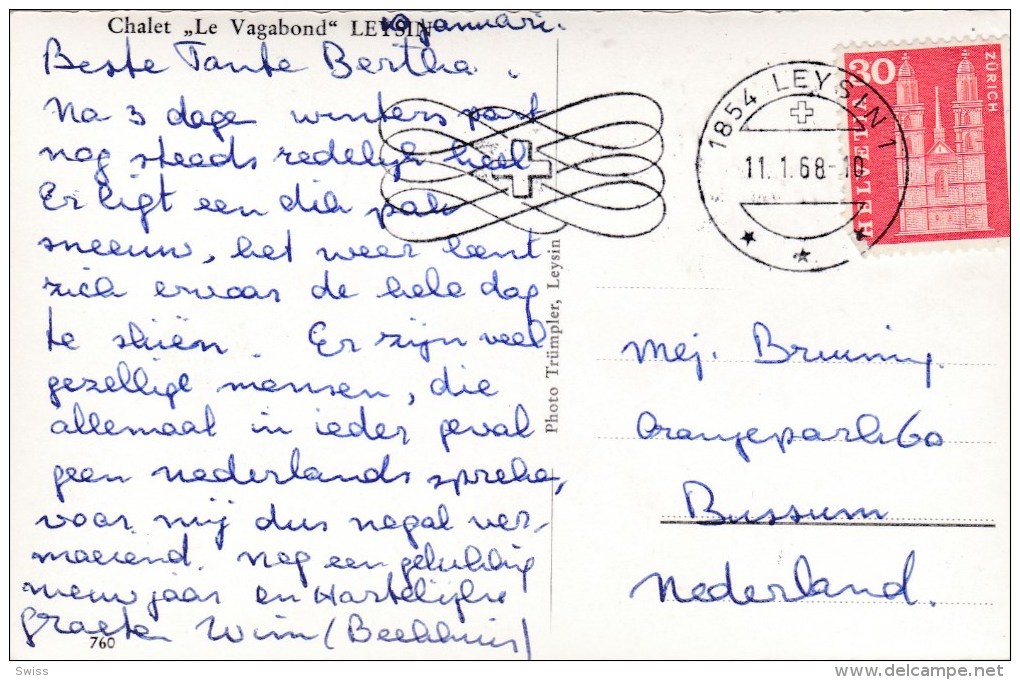 Chalet „Le Vagabond" LEYSIN
10 januari.
Beste Tante Bertha,
Na 3 dagen wintersport
nog steeds redelijk heel
Er ligt een dik pak
sneeuw, het weer leent
zich ervoor de hele dag
te skiën. Er zijn veel
gezellige mensen, die
allemaal in ieder geval
geen nederlands spreken,
voor mij dus nogal ver-
moeiend. nog een gelukkig
nieuwjaar en Hartelijke
groeten Wim (Beekhuis)
760
Photo Trümpler, Leysin
1854 LEYSIN 1
11.1.68-10
30
HELVETIA
ZÜRICH
Mej. Bruining.
Oranjepark 60
Bussum
Nederland.
Swiss
delcampe.net